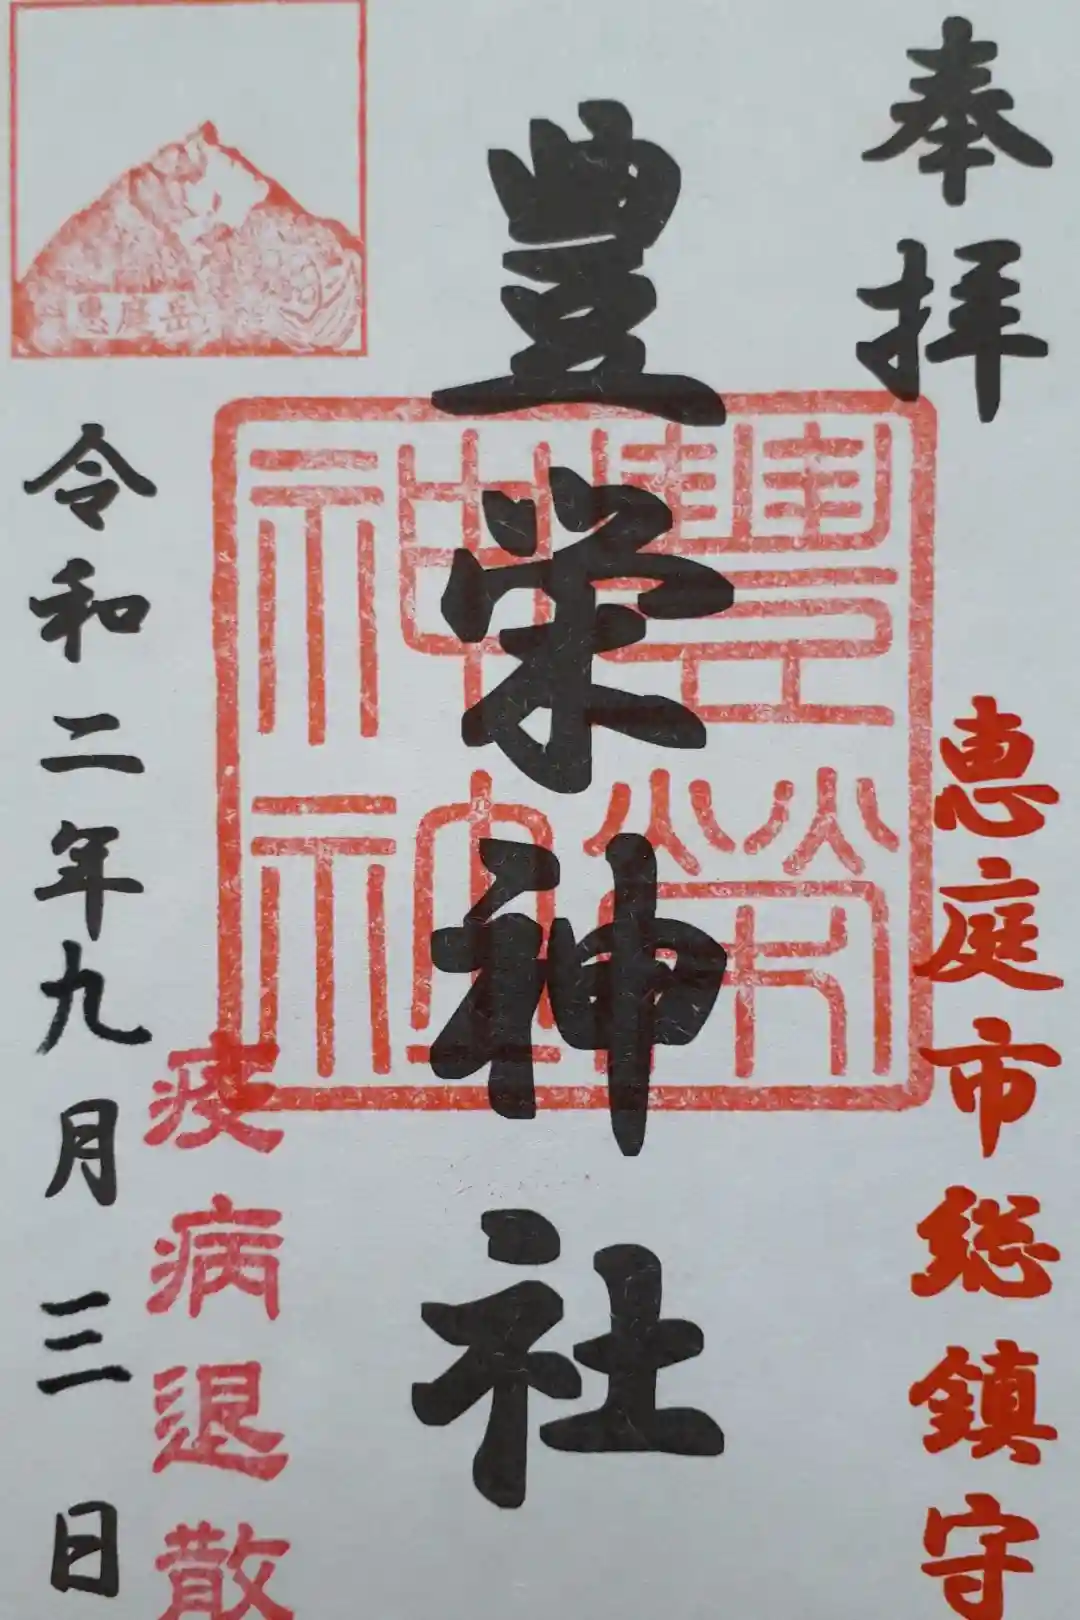 奉拝
恵庭市総鎮守
豊栄神社
豊栄神社
疫病退散
恵庭岳
令和二年九月三日